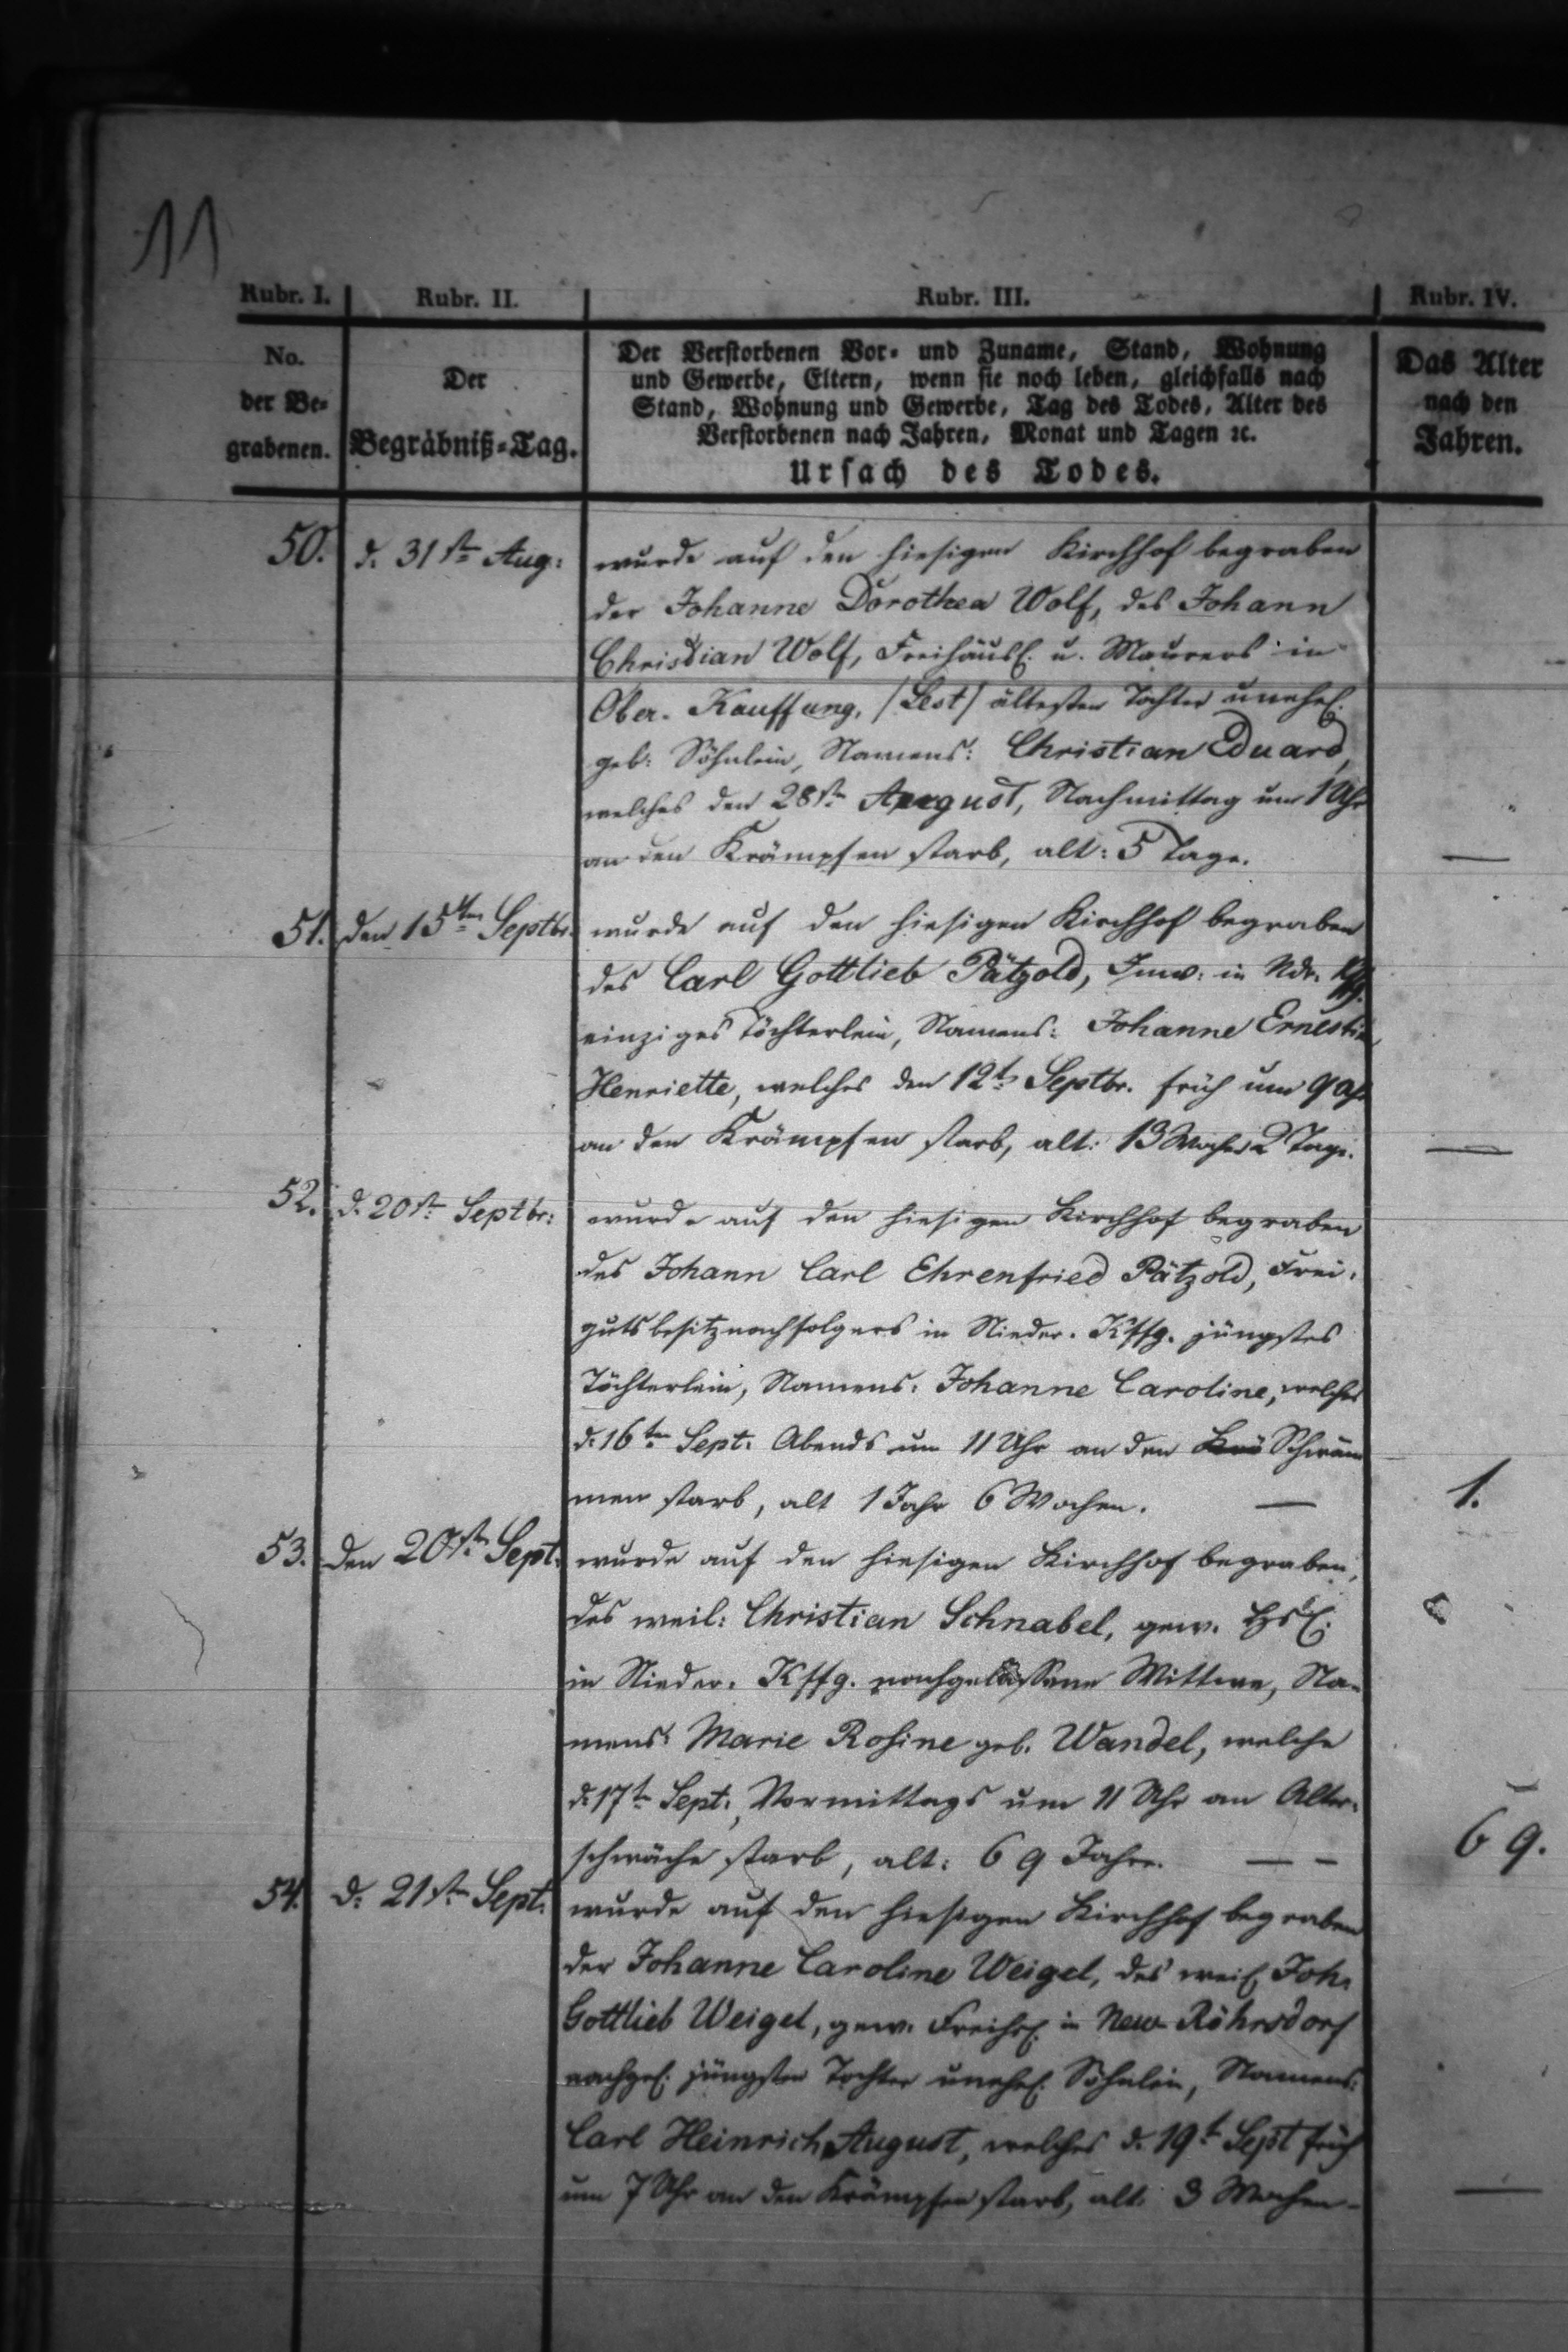 11
Rubr. I. Rubr. II. Rubr. III. Rubr. IV.
No. der Be- grabenen.
Der Begräbniß-Tag.
Der Verstorbenen Vor- und Zuname, Stand, Wohnung
und Gewerbe, Eltern, wenn sie noch leben, gleichfalls nach
Stand, Wohnung und Gewerbe, Tag des Todes, Alter des
Verstorbenen nach Jahren, Monat und Tagen ꝛc.
Ursach des Todes.
Das Alter nach den Jahren.
50. d. 31st Aug: wurde auf den hiesigen Kirchhof begraben
der Johanne Dorothea Wolf, des Johann
Christian Wolf, Freihäusl. u. Maurers in
Ober-Kauffung, /Lest/ ältesten Tochter unehel.
geb: Söhnlein, Namens: Christian Eduard,
welches den 28st August, Nachmittag um 1 Uhr
an den Krämpfen starb, alt: 5 Tage. —
51. den 15ten Septbr. wurde auf den hiesigen Kirchhof begraben
des Carl Gottlieb Pätzold, Inw: in Ndr. Kffg.
einziges Töchterlein, Namens: Johanne Ernestine
Henriette, welches den 12t Septbr. früh um 9 Uhr
an den Krämpfen starb, alt: 13 Wochen 2 Tage. —
52. d. 20st Septbr: wurde auf den hiesigen Kirchhof begraben
des Johann Carl Ehrenfried Pätzold, Frei-
gutsbesitznachfolgers in Nieder-Kffg. jüngstes
Töchterlein, Namens: Johanne Caroline, welches
d. 16ten Sept: Abends um 11 Uhr an den Schwäm
men starb, alt 1 Jahr 6 Wochen. — 1.
53. den 20st Sept. wurde auf den hiesigen Kirchhof begraben,
des weil: Christian Schnabel, gew. Hsl.
in Nieder-Kffg. nachgelassene Wittwe, Na-
mens: Marie Rosine geb. Wandel, welche
d. 17t Sept:, Vormittags um 11 Uhr an Alter-
schwäche starb, alt: 69 Jahre. — — 69.
54. d. 21st Sept. wurde auf den hiesigen Kirchhof begraben
der Johanne Caroline Weigel, des weil. Joh.
Gottlieb Weigel, gew. Freihsl. in Neu-Röhrsdorf
nachgel. jüngsten Tochter unehel. Söhnlein, Namens:
Carl Heinrich August, welches d. 19t Sept früh
um 7 Uhr an den Krämpfen starb, alt: 3 Wochen - —